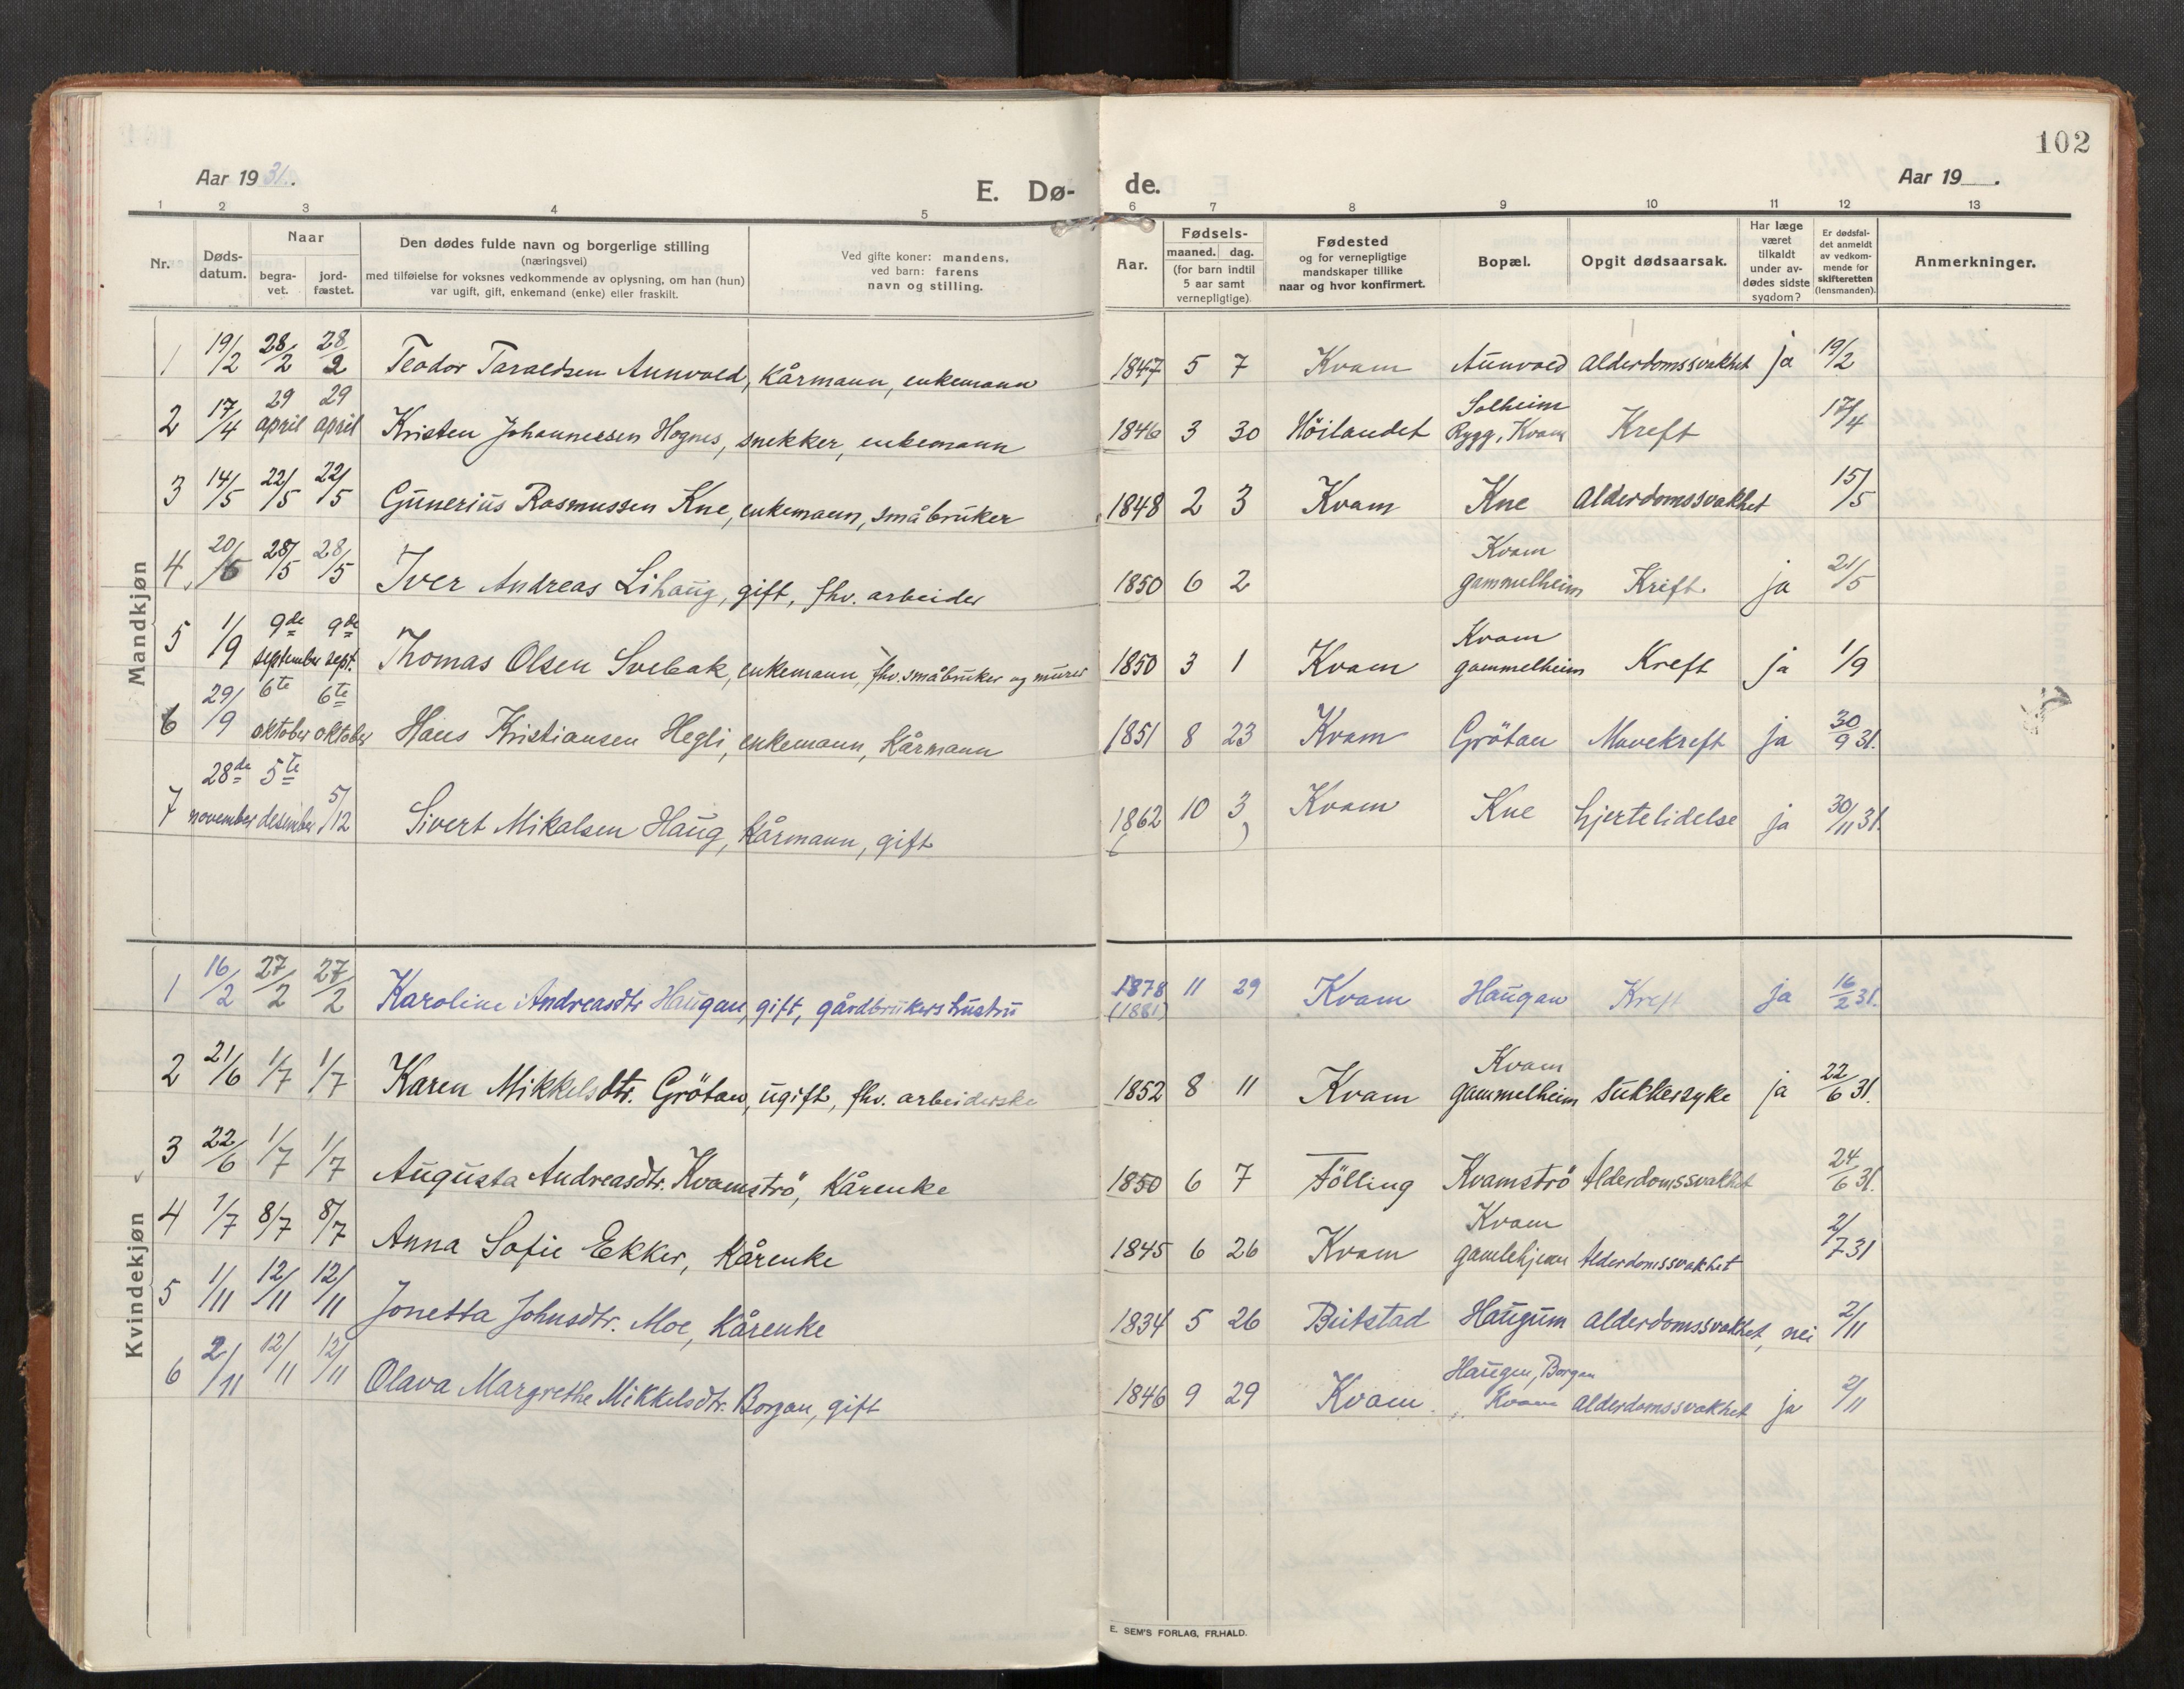 102
Aar 19 31.
E. Dø- de.
Aar 19 .
1 2 3 4 5 6 7 8 9 10 11 12 13
Nr.
Døds-
datum.
Naar
begra-
vet.
jord-
fæstet.
Den dødes fulde navn og borgerlige stilling
(næringsvei)
med tilføielse for voksnes vedkommende av oplysning, om han (hun)
var ugift, gift, enkemand (enke) eller fraskilt.
Ved gifte koner: mandens,
ved barn: farens
navn og stilling.
Aar.
Fødsels-
maaned. dag.
(for barn indtil
5 aar samt
vernepligtige).
Fødested
og for vernepligtige
mandskaper tillike
naar og hvor konfirmert.
Bopæl.
Opgit dødsaarsak.
Har læge
været
tilkaldt
under av-
dødes sidste
sygdom?
Er dødsfal-
det anmeldt
av vedkom-
mende for
skifteretten
(lensmanden).
Anmerkninger.
Mandkjøn
1 19/2 28/2 28/2 Teodor Taraldsen Aunvold, kårmann, enkemann 1847 5 7 Kvam Aunvold Alderdomssvakhet ja 19/2
2 17/4 29 april 29 april Kristen Johannessen Hognes, snekker, enkemann 1846 3 30 Höilandet Solheim Rygg, Kvam Kreft 17/4
3 14/5 22/5 22/5 Gunerius Rasmussen Kne, enkemann, småbruker 1848 2 3 Kvam Kne Alderdomssvakhet 15/5
4 20/5 28/5 28/5 Iver Andreas Lihaug, gift, fhv. arbeider 1850 6 2 Kvam gammelheim Kreft. ja 21/5
5 1/9 9de september 9de sept. Thomas Olsen Svebak, enkemann, fhv. småbruker og murer 1850 3 1 Kvam Kvam gammelheim Kreft ja 1/9
6 29/9 6te oktober 6te oktober Hans Kristiansen Hegli, enkemann, kårmann 1851 8 23 Kvam Grötan Mavekreft ja 30/9 31.
7 28de november 5te desember 5/12 Sivert Mikalsen Haug, kårmann, gift 1862 10 3 Kvam Kne hjertelidelse ja 30/11 31.
Kvindekjøn
1 16/2 27/2 27/2 Karoline Andreasdtr Haugan, gift, gårdbrukershustru 1878 (1881) 11 29 Kvam Haugan Kreft ja 16/2 31.
2 21/6 1/7 1/7 Karen Mikkelsdtr. Grötan, ugift, fhv. arbeiderske 1852 8 11 Kvam Kvam gammelheim Sukkersyke ja 22/6 31.
3 22/6 1/7 1/7 Augusta Andreasdtr. Kvamströ, kårenke 1850 6 7 Fölling Kvamströ Alderdomssvakhet 24/6 31.
4 1/7 8/7 8/7 Anna Sofie Ekker, kårenke 1845 6 26 Kvam Kvam gamlehjem Alderdomssvakhet 2/7 31
5 1/11 12/11 12/11 Jonetta Johnsdtr. Moe, kårenke 1834 5 26 Beitstad Haugum Alderdomssvakhet, nei 2/11
6 2/11 12/11 12/11 Olava Margrethe Mikkelsdtr. Borgan, gift 1846 9 29 Kvam. Haugen, Borgan Kvam Alderdomssvakhet ja 2/11
E. SEM'S FORLAG, FR.HALD.